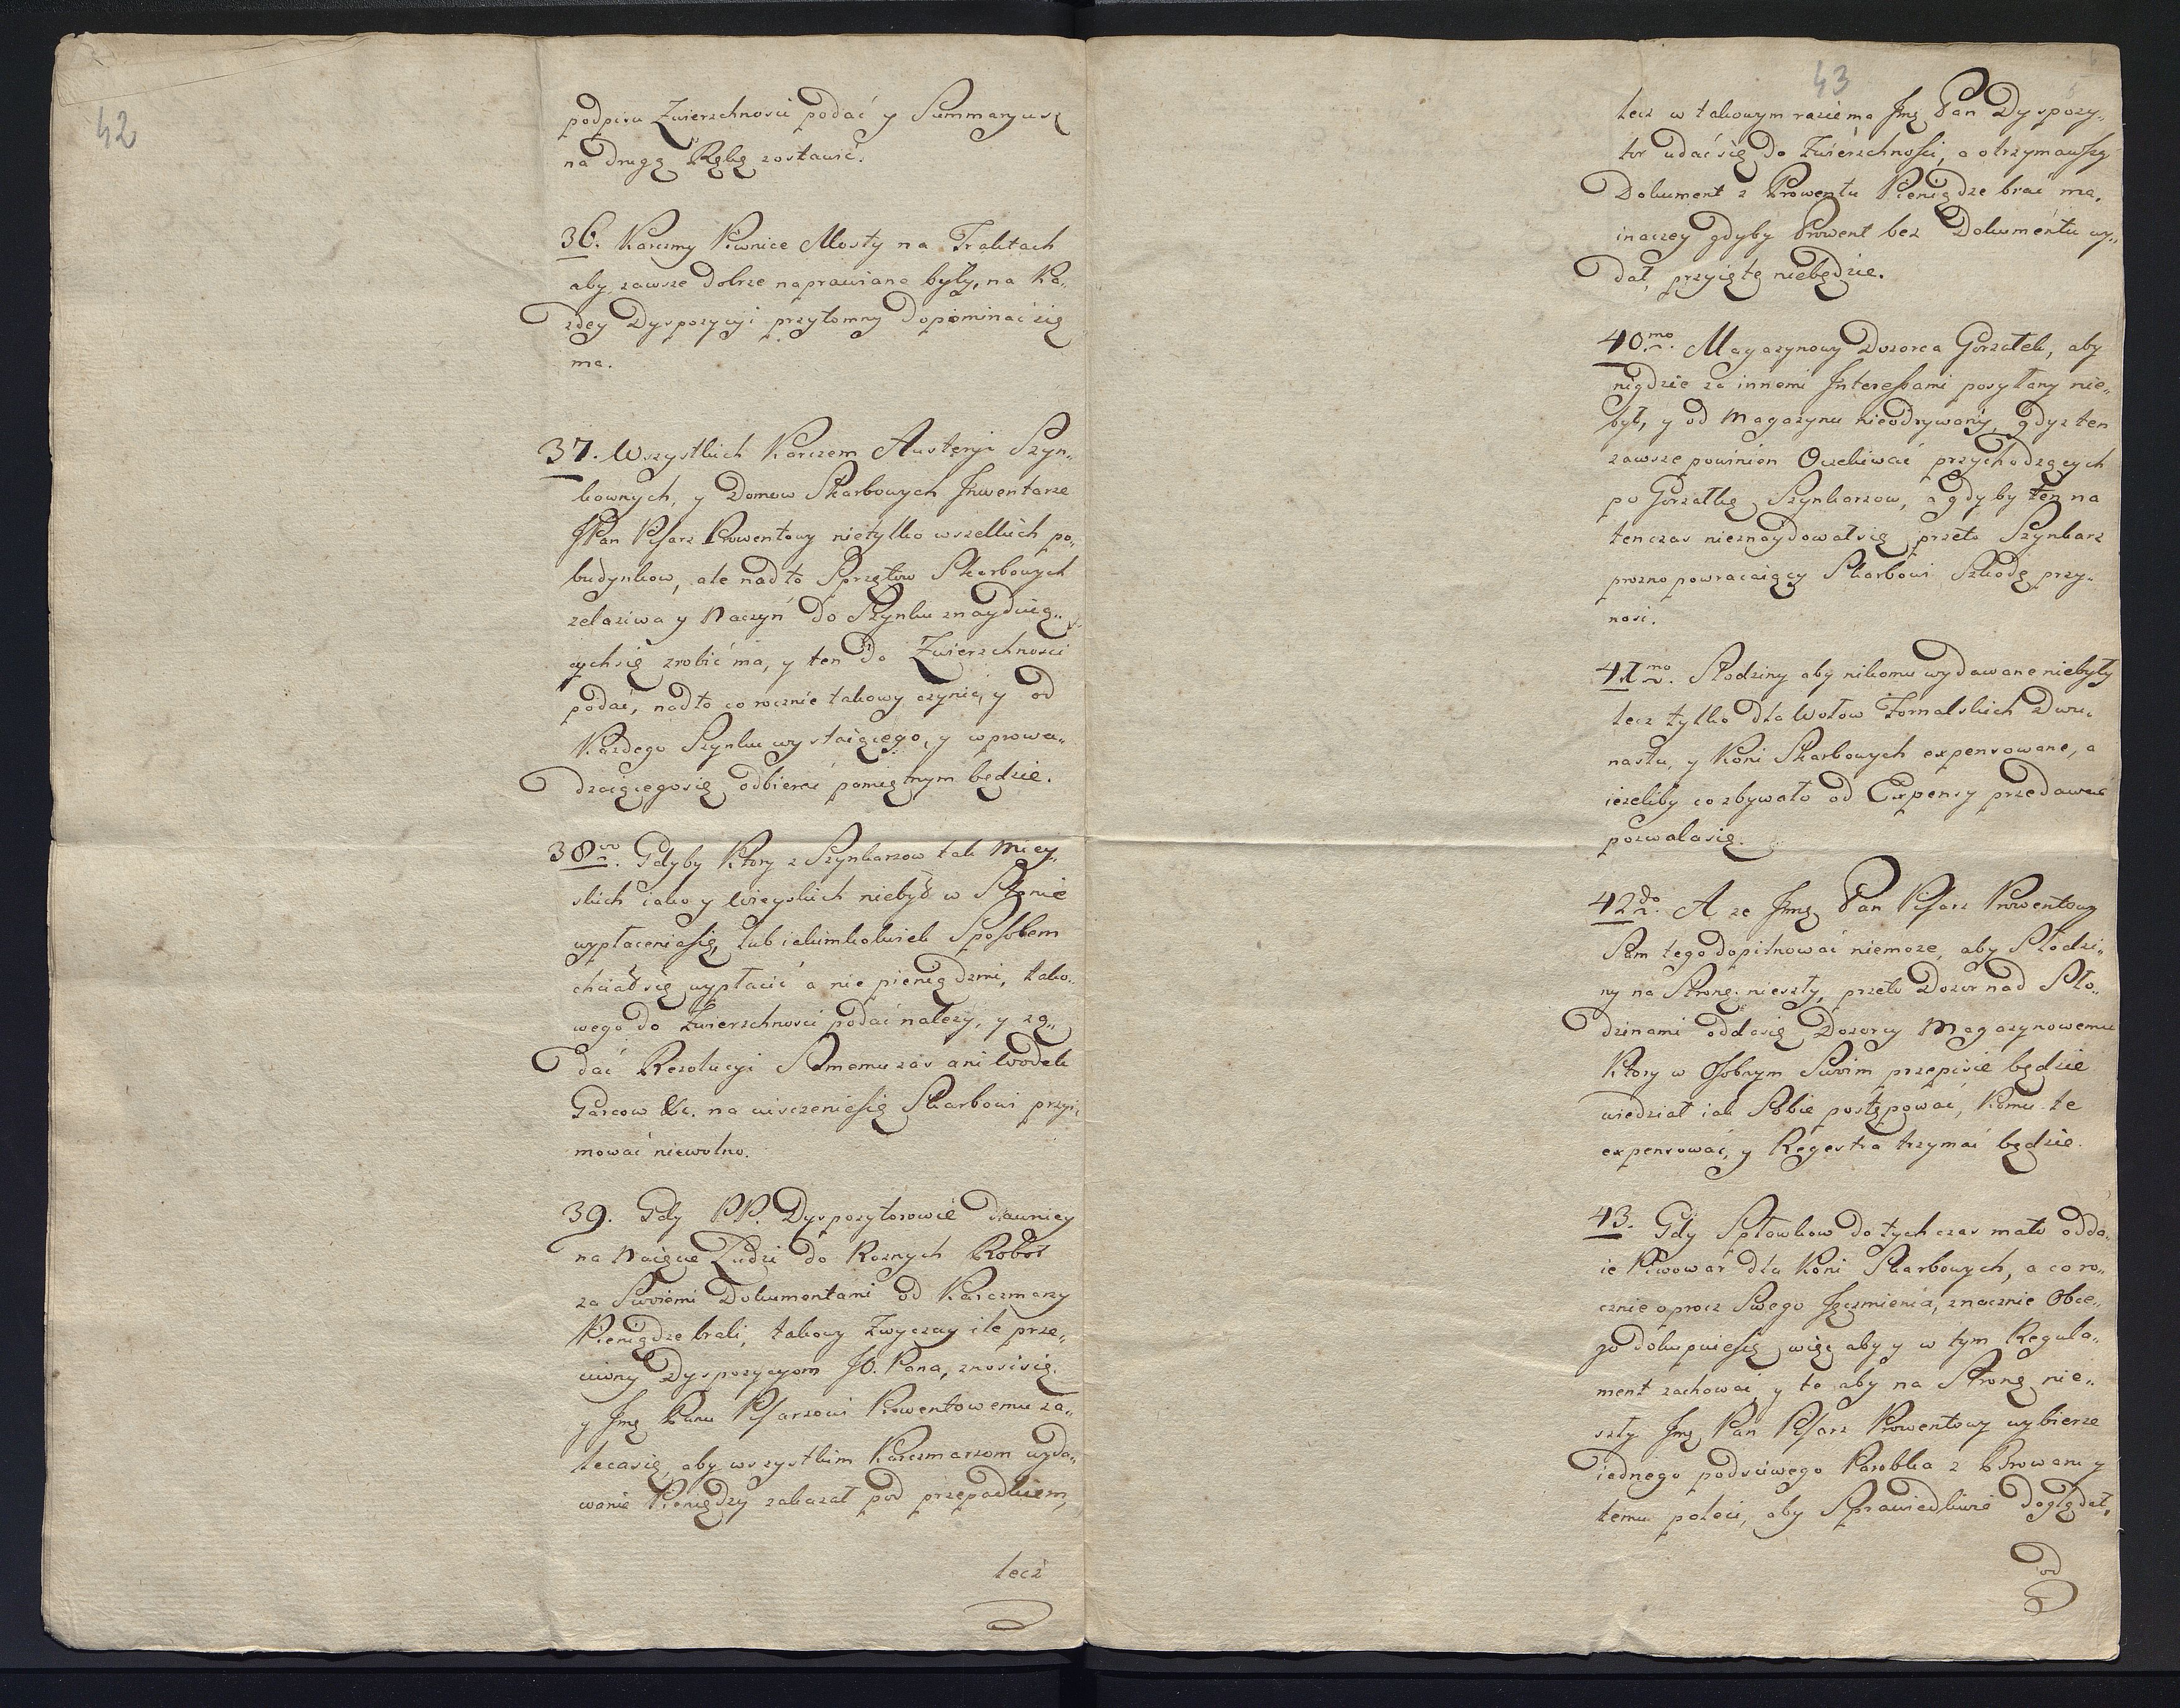 42
podpisu Zwierzchnosci podać y Summaryusz
na drugą Rękę zostawić.
36. Karczmy Piwnice Mosty na Traktach
aby zawsze dobrze naprawiane były, na Ka„
zdey Dyspozycyi przytomny dopominać się
ma.
37. Wszystkich Karczem Austeryi Szyn„
kownych, y Domow Skarbowych Inwentarze
JPan Pisarz Prowentowy nietylko wszelkich po„
budynkow, ale nadto Sprzętow Skarbowych
zelaziwa y Naczyń do Szynku znayduią„
cych się zrobić ma, y ten do Zwierzchnosci
podać, nadto co rocznie takowy czynić, y od
Kazdego Szynku wystaiącego, y wprowa„
dzaiącego się odbierać pamiętnym będzie.
38vo. Gdyby Ktory z Szynkarzow tak Miey„
skich iako y Wieyskich niebył w Stanie
wypłacenia się, lub iakimkolwiek Sposobem
chciał się wypłacić a nie pieniędzmi, tako„
wego do Zwierzchnosci podać nalezy, y zą„
dać Rezolucyi Samemu zas ani Wodek
Garcow &c. na uiszczenie się Skarbowi przyi„
mować niewolno.
39. Gdy PP. Dyspozytorowie dawniey
na Naięcie Ludzi do Roznych Robot
za Swoiemi Dokumentami od Karczmarzy
Pieniądze brali, takowy Zwyczay ile prze„
ciwny Dyspozycyom JO. Pana, znosi się.
y Jmę Panu Pisarzowi Prowentowemu za„
leca się, aby wszystkim Karczmarzom wyda„
wanie Pieniędzy zakazał pod przepadkiem,
lecz
43
lecz w takowym razie ma Jmę Pan Dyspozy„
tor udać się do Zwierzchnosci, a otrzymawszy
Dokument z Prowentu Pieniądze brać ma,
inaczey gdyby Prowent bez Dokumentu wy„
dał, przyięte niebędzie.
40mo. Magazynowy Dozorca Gorzałek, aby
nigdzie za innemi Interessami posyłany nie„
był, y od Magazynu nieodrywany, gdyz ten
zawsze powinien Oczekiwać przychodzących
po Gorzałkę Szynkarzow, a gdyby ten na
ten czas nieznaydował się, przeto Szynkarz
prozno powracaiący Skarbowi Szkodę przy„
nosi.
41mo. Słodziny aby nikomu wydawane niebyły
lecz tylko dla Wołow Fornalskich Dwu„
nastu, y Koni Skarbowych expensowane, a
iezeliby co zbywało od Expensy przedawać
pozwala się.
42do. A ze Jmę Pan Pisarz Prowentowy
Sam tego dopilnować niemoze, aby Słodzi„
ny na Stronę nieszły, przeto Dozor nad Sło„
dzinami odda się Dozorcy Magazynowemu
Ktory w Osobnym Swoim przepisie będzie
wiedział iak Sobie postępować, Komu te
expensować, y Regestra trzymać będzie.
43. Gdy Spławkow dotychczas mało odda„
ie Piwowar dla Koni Skarbowych, a co ro„
cznie oprocz Swego Jęczmienia, znacznie Obce„
go dokupuie się, więc aby y w tym Regula„
ment zachować, y te aby na Stronę nie„
szły Jmę Pan Pisarz Prowentowy wybierze
iednego podsciwego Parobka z Browaru y
temu poleci, aby Sprawiedliwie doglądał,
od